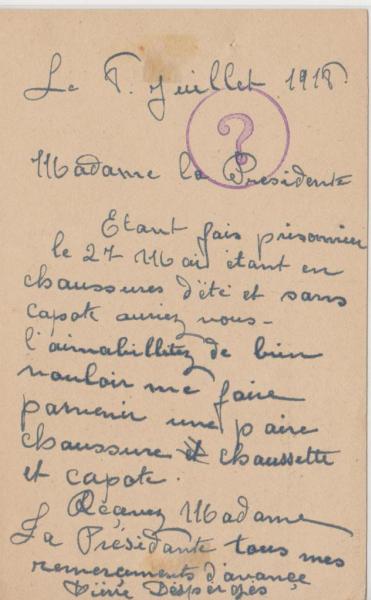 Le 8. Juillet 1918.
?
Madame la Presidente
Etant fais prisonnier
le 27 Mai étant en
chaussures d'été et sans
capote auriez vous-
l'aimabillitez de bien
vouloir me faire
parvenir une paire
chaussure et chaussette
et capote.
Reçevez Madame
La Présidante tous mes
remerçiments d'avançe
Désperges